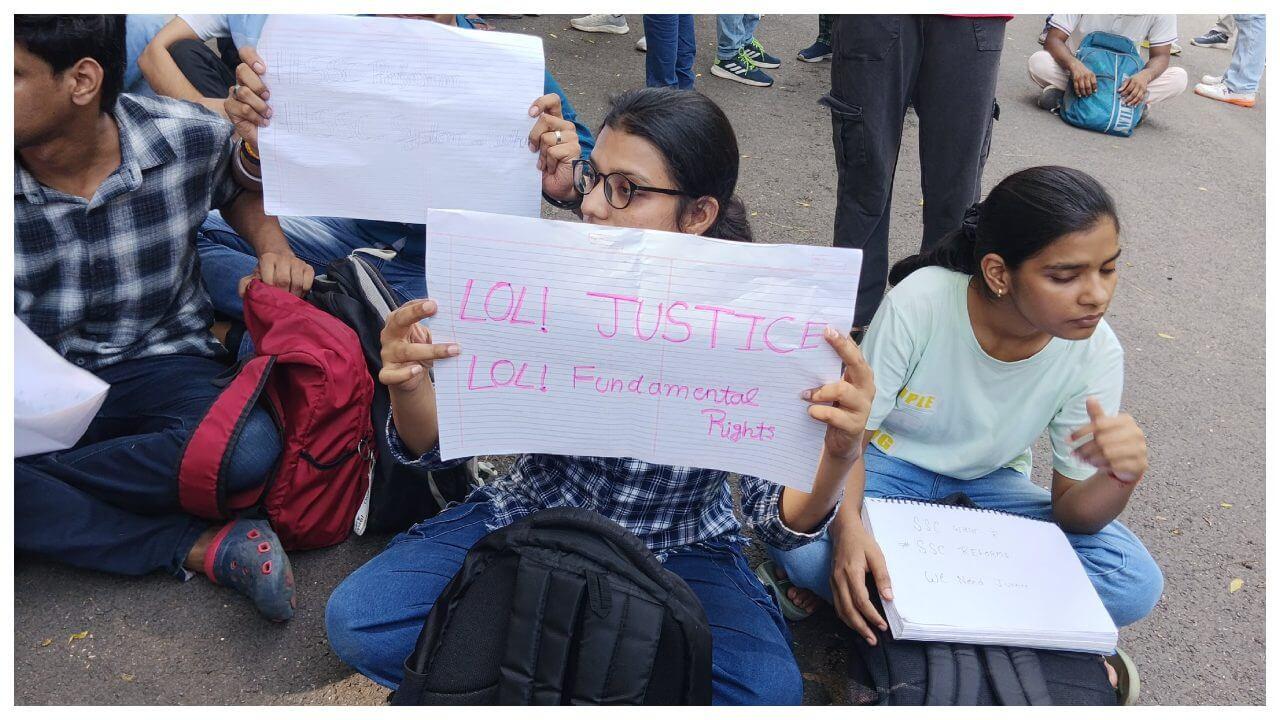 #SSC Reform
#SSC system
LOL! JUSTICE
LOL! Fundamental
Rights
PLE
SSC
* SSC REFORMS
We Need